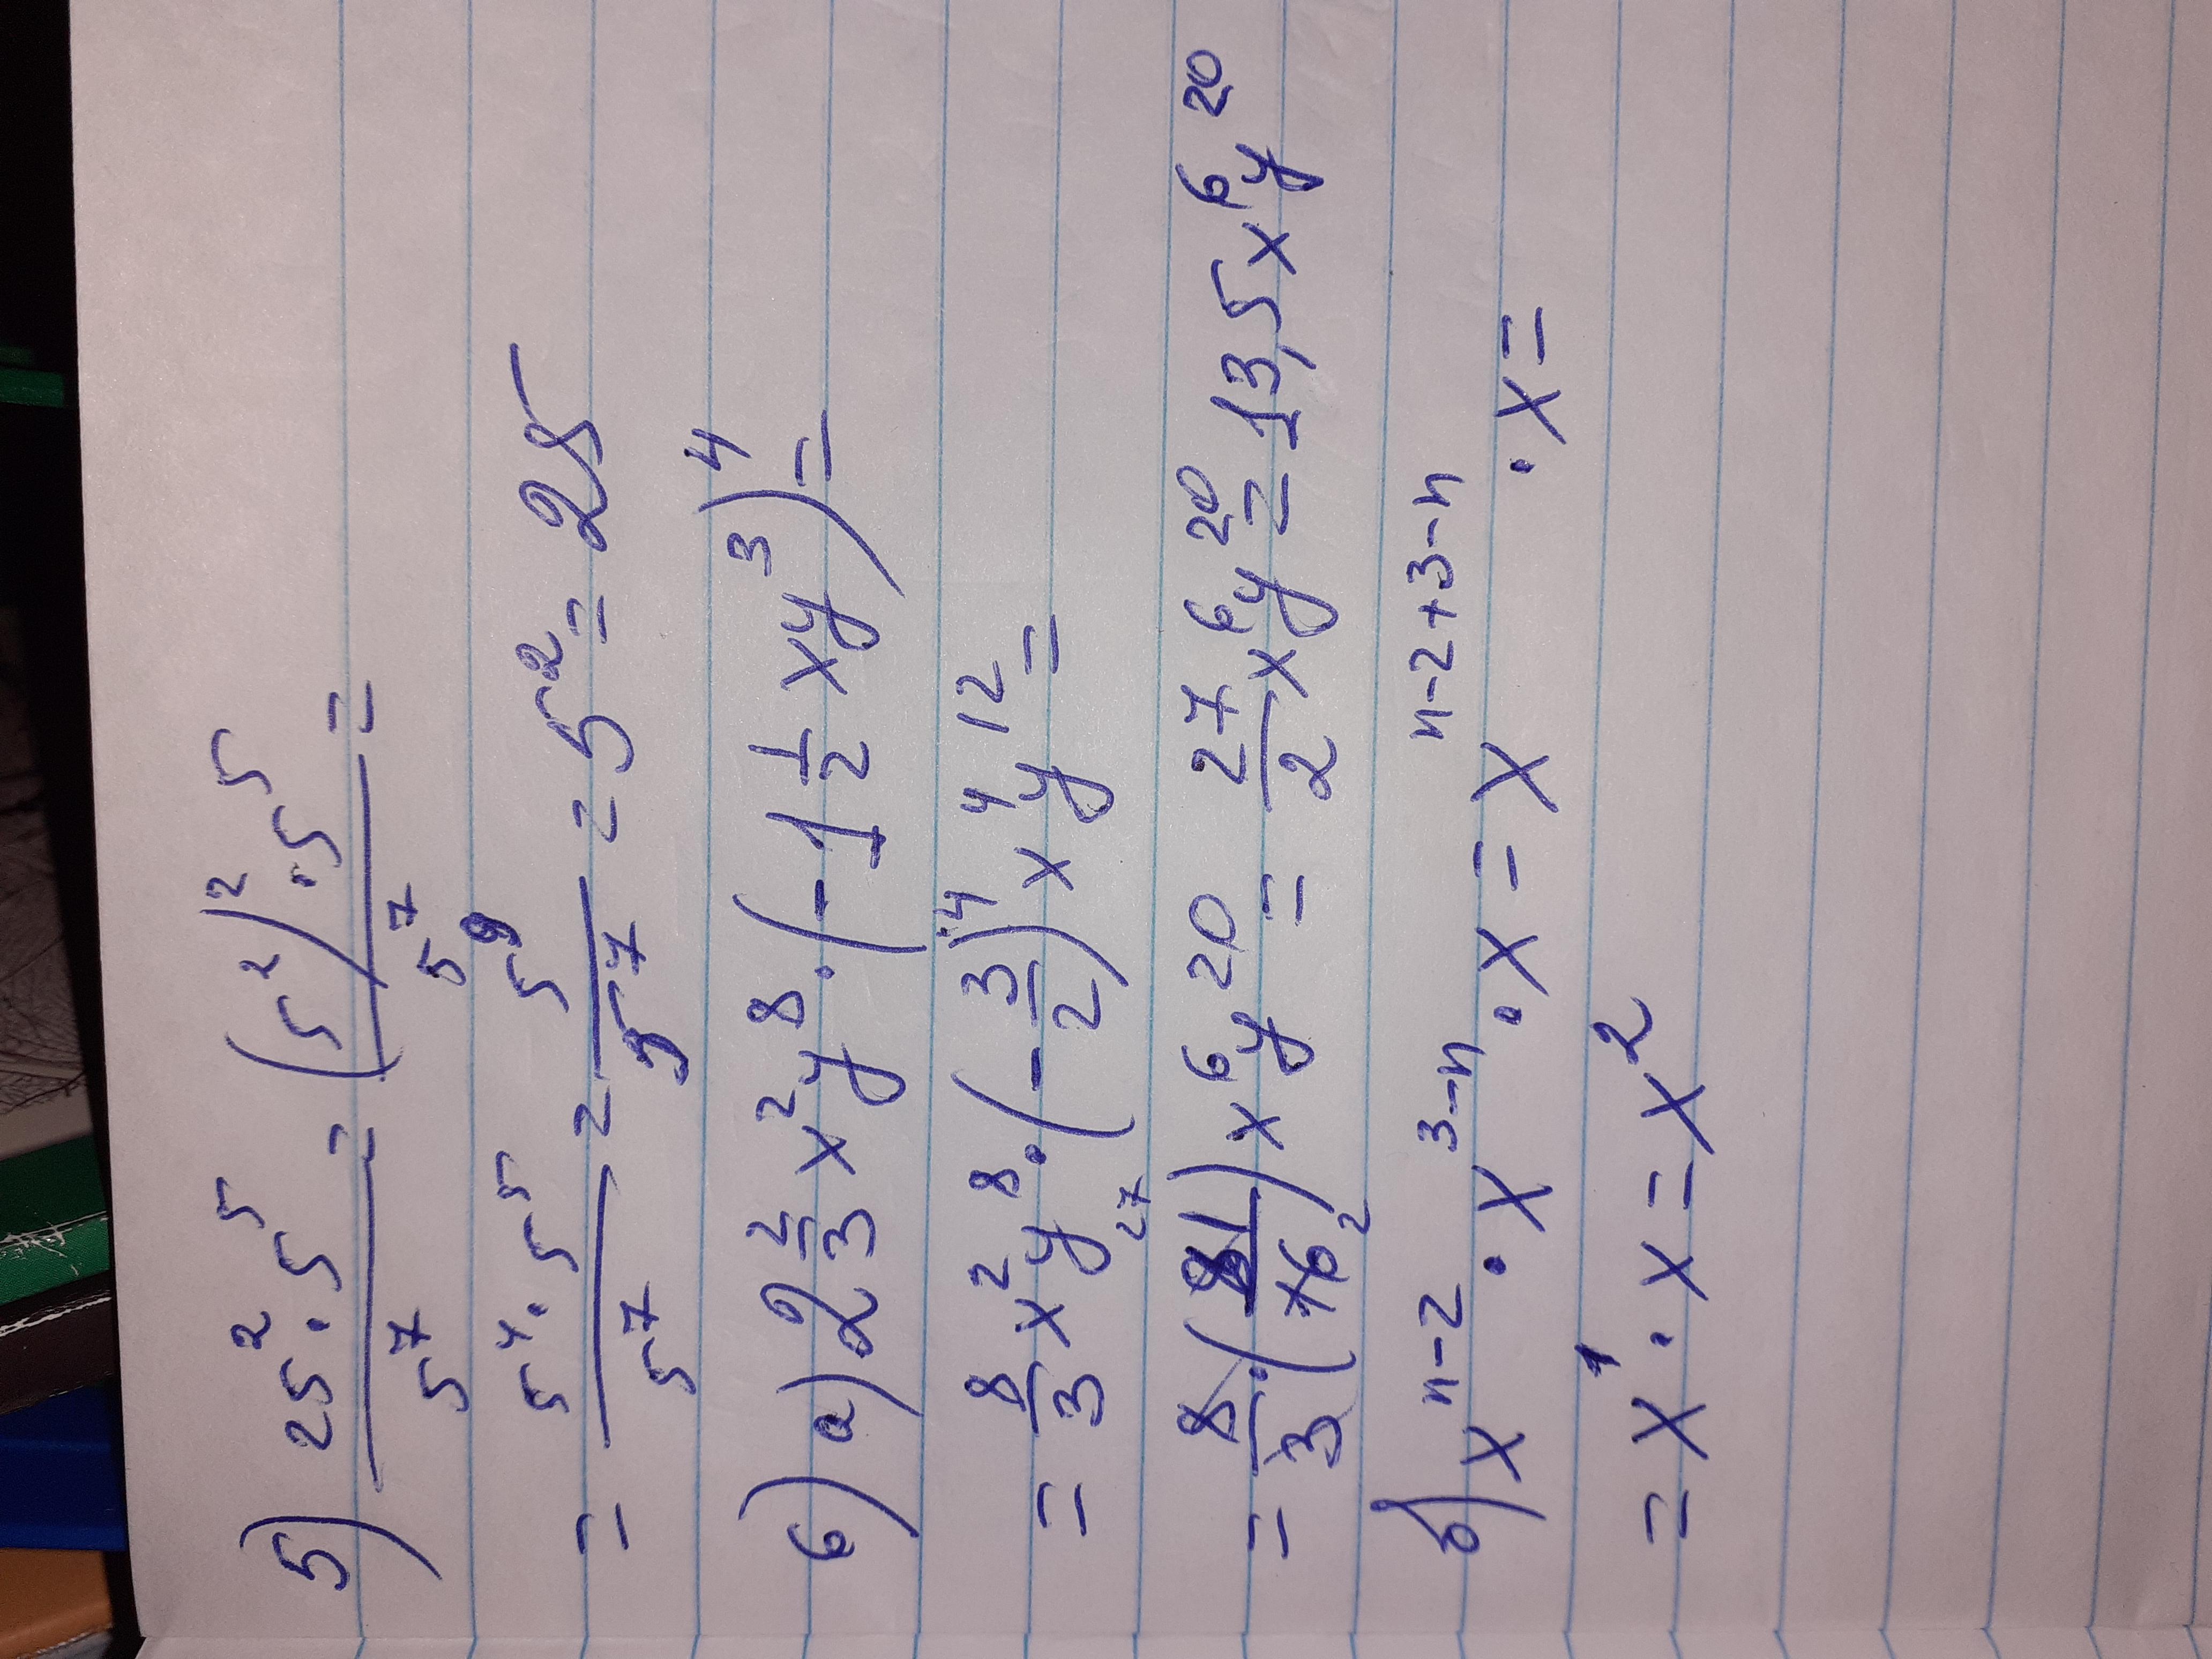 5) 25²·5⁵/5⁷ = (5²)²·5⁵/5⁷ =
= 5⁴·5⁵/5⁷ = 5⁹/5⁷ = 5² = 25
6) а) 2 2/3 x²y⁸·(-1 1/2 xy³)⁴ =
= 8/3 x²y⁸·(-3/2)⁴ x⁴y¹² =
= 8/3·(81/16) x⁶y²⁰ = 27/2 x⁶y²⁰ = 13,5x⁶y²⁰
27
2
б) xⁿ⁻²·x³⁻ⁿ·x = xⁿ⁻²⁺³⁻ⁿ·x =
= x¹·x = x²